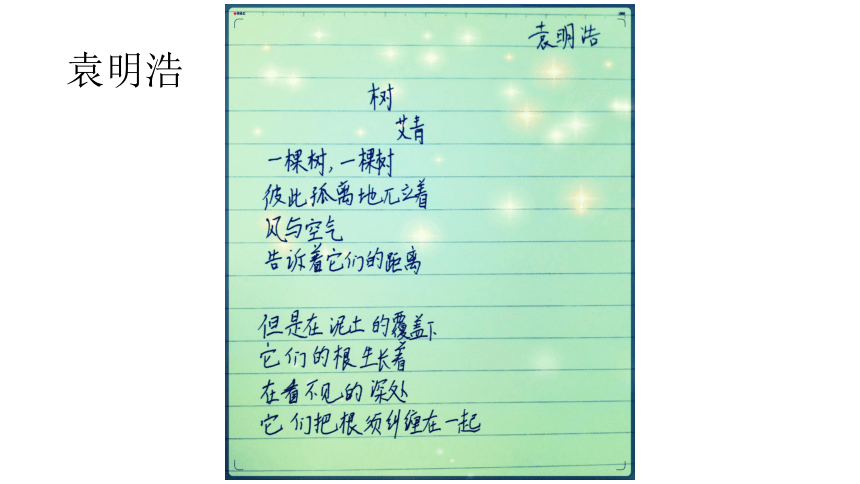 袁明浩
袁明浩
树
艾青
一棵树,一棵树
彼此孤离地兀立着
风与空气
告诉着它们的距离
但是在泥土的覆盖下
它们的根生长着
在看不见的深处
它们把根须纠缠在一起